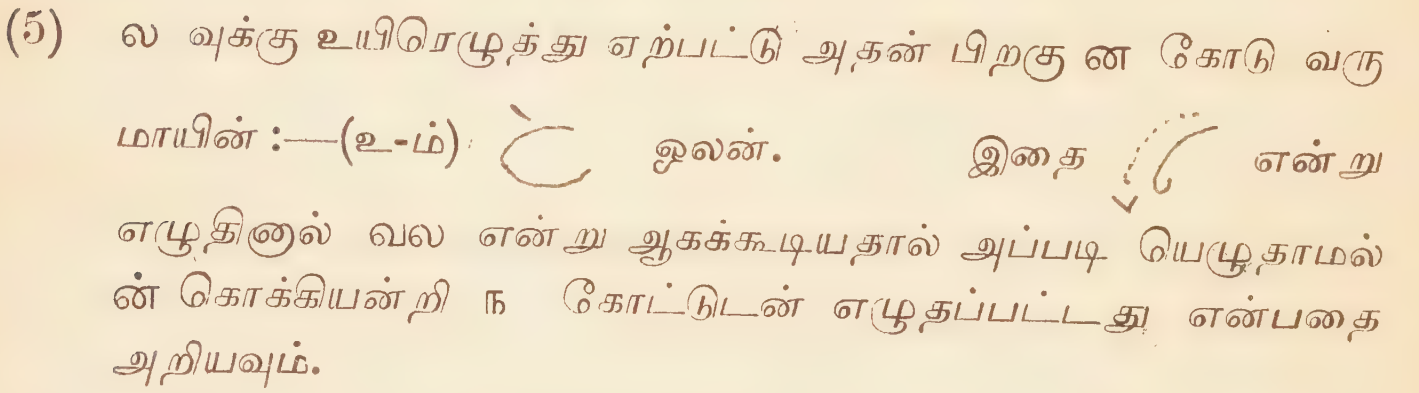 (5) ல வுக்கு உயிரெழுத்து ஏற்பட்டு அதன் பிறகு ன கோடு வரு
மாயின் :—(உ-ம்) ஒலன். இதை என்று
எழுதினால் வல என்று ஆகக்கூடியதால் அப்படி யெழுதாமல்
ன் கொக்கியன்றி ந கோட்டுடன் எழுதப்பட்டது என்பதை
அறியவும்.